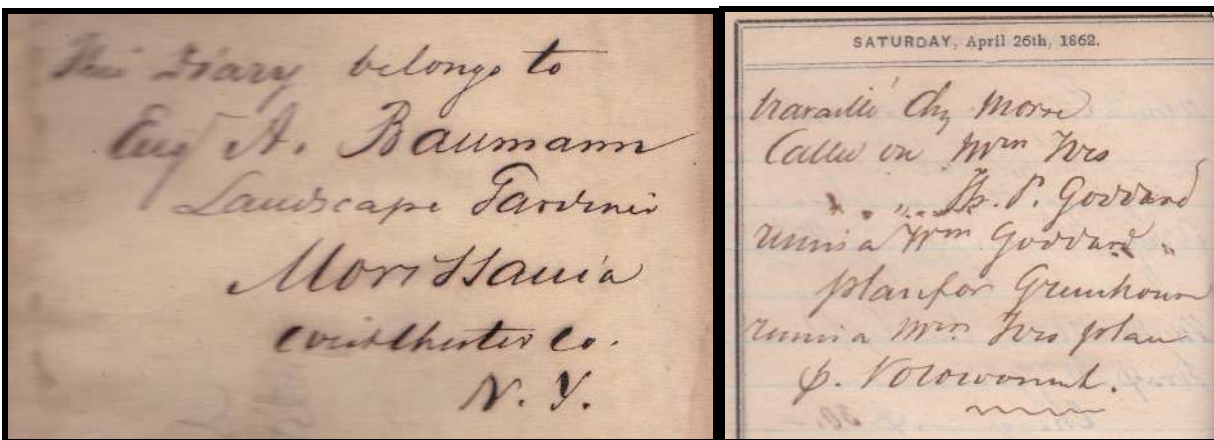 This Diary belongs to
Eug A. Baumann
Landscape Gardener
Morrissania
Westchester Co.
N. Y.
SATURDAY, April 26th, 1862.
travaillé chz Morse
Called on Mrs Ives
" " Th. P. Goddard
remis a Wm Goddard
plan for Greenhouse
remis a Mrs Ives plan
p.